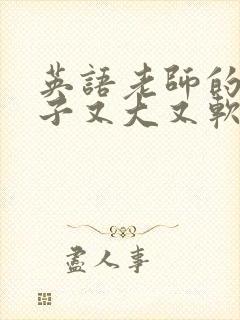 英語老師的
子又大又軟
盡人事